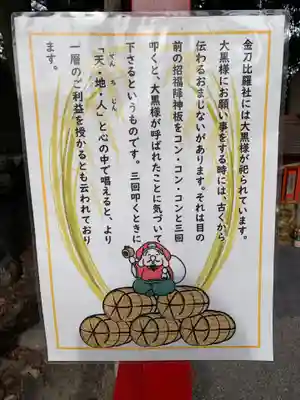 金刀比羅社には大黒様が祀られています。
大黒様にお願い事をする時には、古くから
伝わるおまじないがあります。それは目の
前の招福降神板をコン・コン・コンと三回
叩くと、大黒様が呼ばれたことに気づいて
下さるというものです。三回叩くときに
「天・地・人」と心の中で唱えると、より
てん ち じん
一層のご利益を授かるとも云われており
ます。